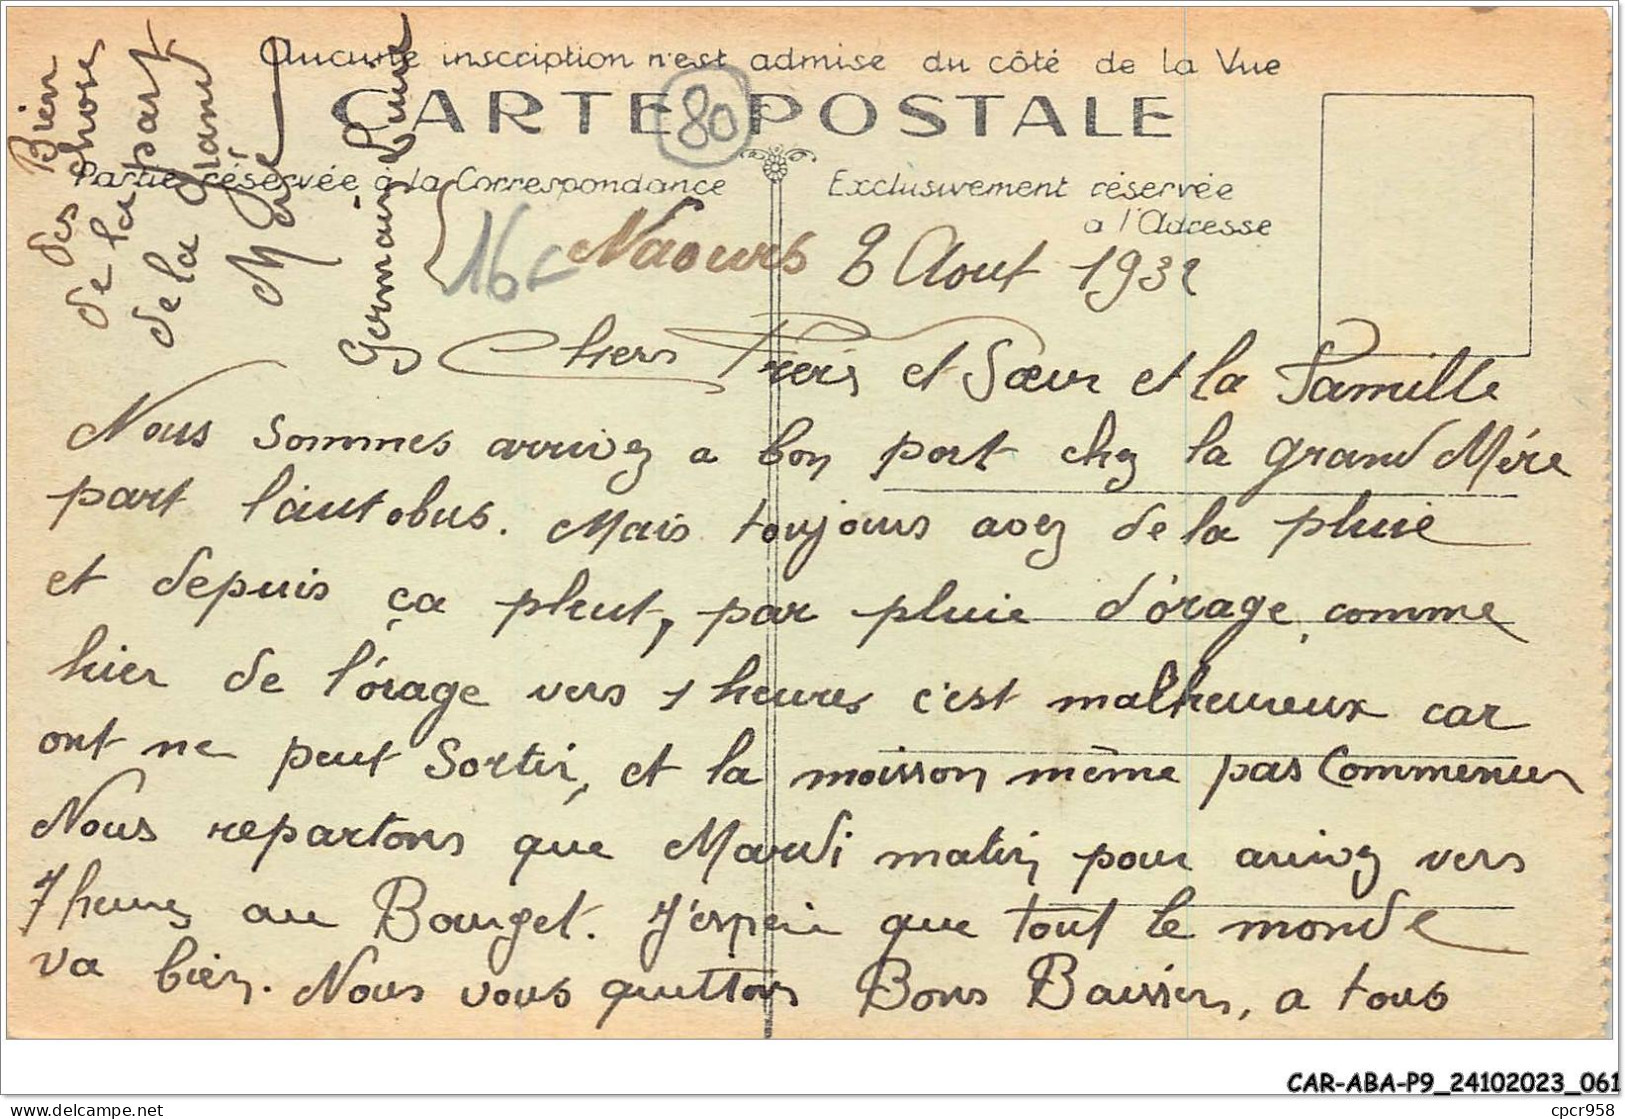 Aucune inscription n'est admise du côté de la Vue
CARTE POSTALE
80
Partie réservée à la Correspondance
Exclusivement réservée
a l'Adresse
16-
Naours 8 Aout 1932
Chers Frers et Sœur et la Famille
Nous sommes arrivez a bon port chez la grand Mére
part l'autobus. Mais toujours avez de la pluie
et depuis ça pleut, par pluie d'órage, comme
hier de l'órage vers 1 heures c'est malheureux car
ont ne peut Sortir, et la moisson même pas Commencer
Nous repartons que Mardi matin pour arrivez vers
7 heures au Bourget. J'espère que tout le monde
va bien. Nous vous quittons Bons Baisiers, a tous
Bien
des choses
de la part
de la grand
Mére
Germaine
CAR-ABA-P9_24102023_061
cpcr958